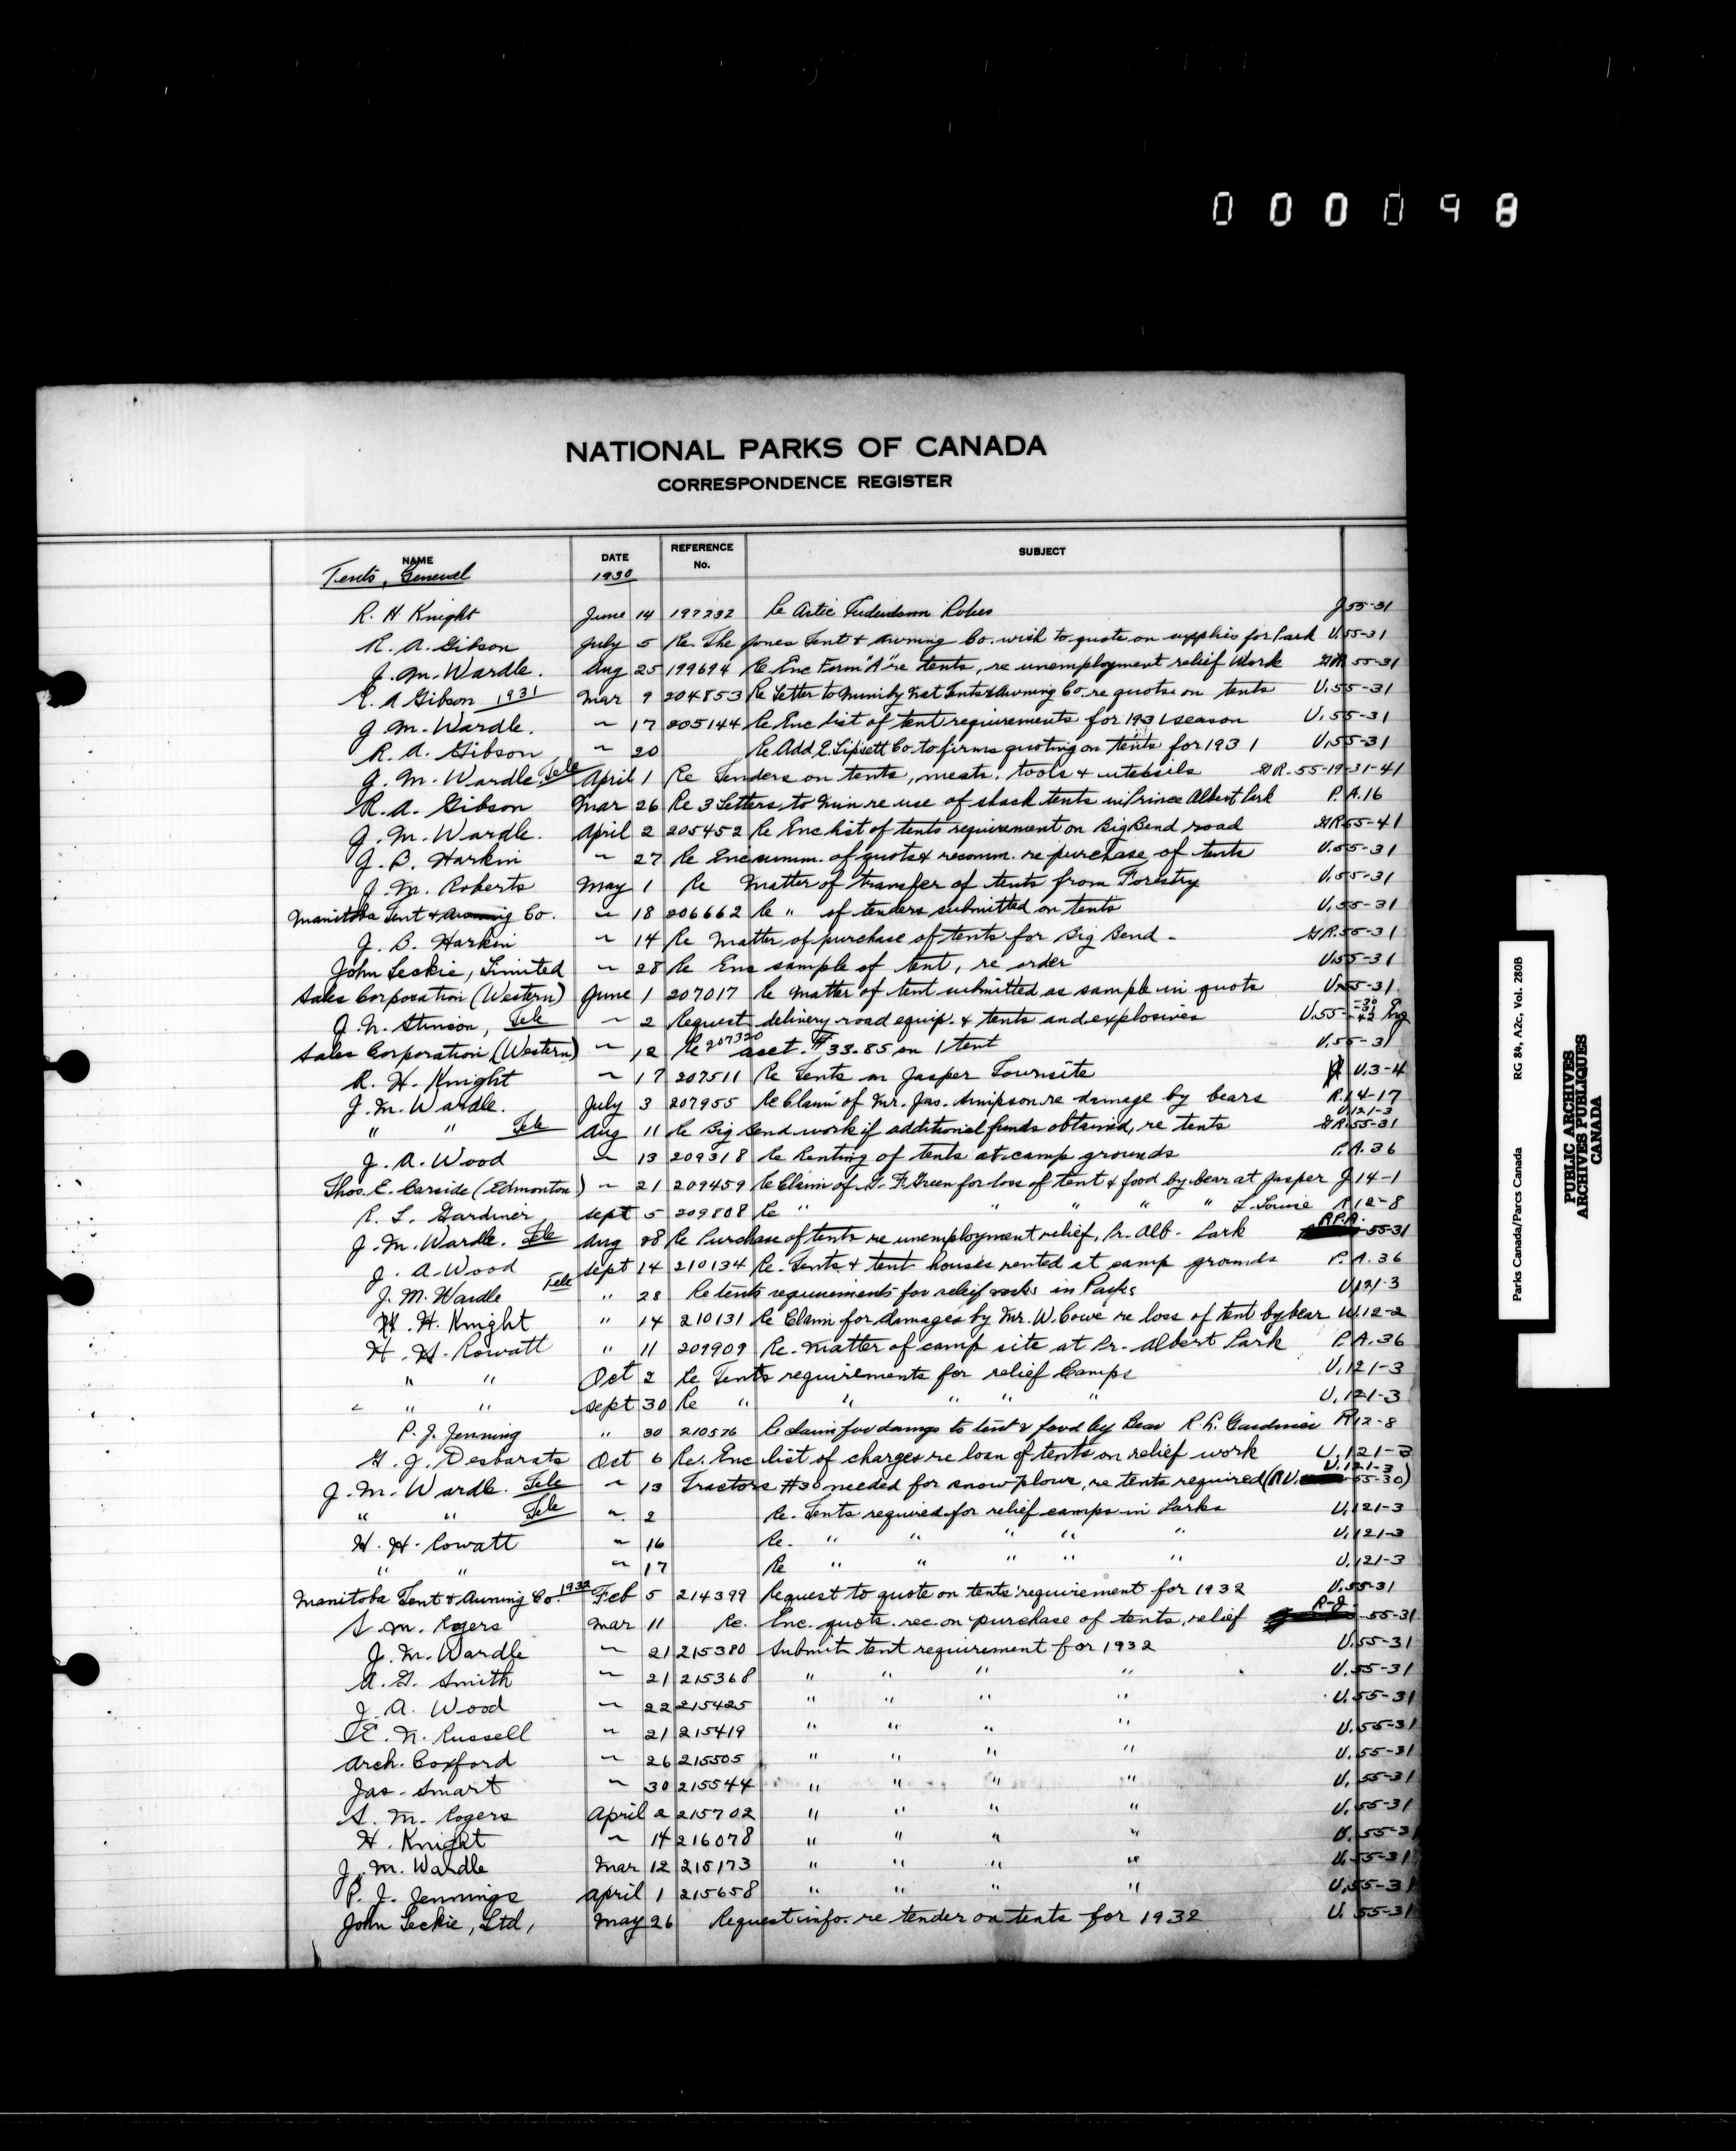 000098
NATIONAL PARKS OF CANADA
CORRESPONDENCE REGISTER
NAME DATE REFERENCE No. SUBJECT
Tents, General 1930
R. H. Knight June 14 197232 Re Artic Robes J 55-31
R. A. Gibson July 5 Re. The Jones Tent & Awning Co. wish to quote on supplies for Park U.55-31
J. M. Wardle. Aug 25 199694 Re Enc Form "A" re tents, re unemployment relief Work GR 55-31
R. A Gibson 1931 Mar 9 204853 Re Letter to Tents & Awning Co. re quots on tents U.55-31
J. M. Wardle. " 17 205144 Re Enc list of tent requirements for 1931 season U.55-31
R. A. Gibson " 20 Re Add E. Lipsett Co. to firms quoting on tents for 1931 U.55-31
J. M. Wardle. Tele April 1 Re Tenders on tents, meats, tools & utensils GR. 55-19-31-41
R. A. Gibson Mar 26 Re 3 Letters to Min re use of shack tents in Prince Albert Park P.A.16
J. M. Wardle. April 2 205452 Re Enc list of tents requirement on Big Bend road GR 55-41
J. B. Harkin " 27 Re Enc summ. of quots & recomm. re purchase of tents U.55-31
J. M. Roberts May 1 Re Matter of transfer of tents from Forestry U.55-31
Manitoba Tent & Awning Co. " 18 206662 Re " of tenders submitted on tents U.55-31
J. B. Harkin " 14 Re Matter of purchase of tents for Big Bend - GR.55-31
John Leckie, Limited " 28 Re Enc sample of tent, re order U.55-31
Sales Corporation (Western) June 1 207017 Re Matter of tent submitted as sample in quots U.55-31
J. N. Stinson, Tele " 2 Request delivery road equip. & tents and explosives U.55-30-31-42
Sales Corporation (Western) " 12 Re 207320 acct. $33.85 on 1 tent U.55-31
R. H. Knight " 17 207511 Re Tents on Jasper Townsite U.3-4
J. M. Wardle. July 3 207955 Re Claim of Mr. Jas. Simpson re damage by bears R.14-17
" " Tele Aug 11 Re Big Bend work if additional funds obtained, re tents U.121-3 GR.55-31
J. A. Wood " 13 209318 Re Renting of tents at camp grounds P.A.36
Thos. E. Carside (Edmonton) " 21 209459 Re Claim of F. Green for loss of tent & food by bear at Jasper J 14-1
R. L. Gardiner Sept 5 209808 Re " " " " " L. Louise R 12-8
J. M. Wardle. Tele Aug 28 Re Purchase of tents re unemployment relief, Pr. Alb. Park R.P.A. 55-31
J. A. Wood Sept 14 210134 Re. Tents & tent houses rented at camp grounds P.A.36
J. M. Wardle Tele " 28 Re tents requirements for relief works in Parks U.121-3
H. Knight " 14 210131 Re Claim for damages by Mr. W. Cowe re loss of tent by bear W.12-2
H. H. Rowatt " 11 209909 Re. Matter of camp site at Pr. Albert Park P.A.36
" " Oct 2 Re Tents requirements for relief Camps U.121-3
" " Sept 30 Re " " " " " U.121-3
P. J. Jenning " 30 210576 Re claim for damage to tent & food by Bear R. L. Gardiner R 12-8
G. J. Desbarats Oct 6 Re. Enc list of charges re loan of tents on relief work U.121-3
J. M. Wardle. Tele " 13 Tractors #30 needed for snowplows, re tents required U.121-3 (RU. 55-30)
" " Tele " 2 Re. Tents required for relief camps in Parks U.121-3
H. H. Rowatt " 16 Re. " " " " " U.121-3
" " " 17 Re " " " " " U.121-3
Manitoba Tent & Awning Co. 1932 Feb 5 214399 Request to quote on tents requirement for 1932 U.55-31
S. M. Rogers Mar 11 Re. Enc. quots. rec. on purchase of tents, relief R-J 55-31
J. M. Wardle " 21 215380 Submit tent requirement for 1932 U.55-31
A. G. Smith " 21 215368 " " " " U.55-31
J. A. Wood " 22 215425 " " " " U.55-31
E. N. Russell " 21 215419 " " " " U.55-31
Arch. Coxford " 26 215505 " " " " U.55-31
Jas. Smart " 30 215544 " " " " U.55-31
S. M. Rogers April 2 215702 " " " " U.55-31
H. Knight " 14 216078 " " " " U.55-31
J. M. Wardle Mar 12 215173 " " " " U.55-31
P. J. Jennings April 1 215658 " " " " U.55-31
John Leckie, Ltd, May 26 Request info. re tender on tents for 1932 U.55-31
Parks Canada/Parcs Canada RG 84, A2c, Vol. 280B
PUBLIC ARCHIVES
ARCHIVES PUBLIQUES
CANADA